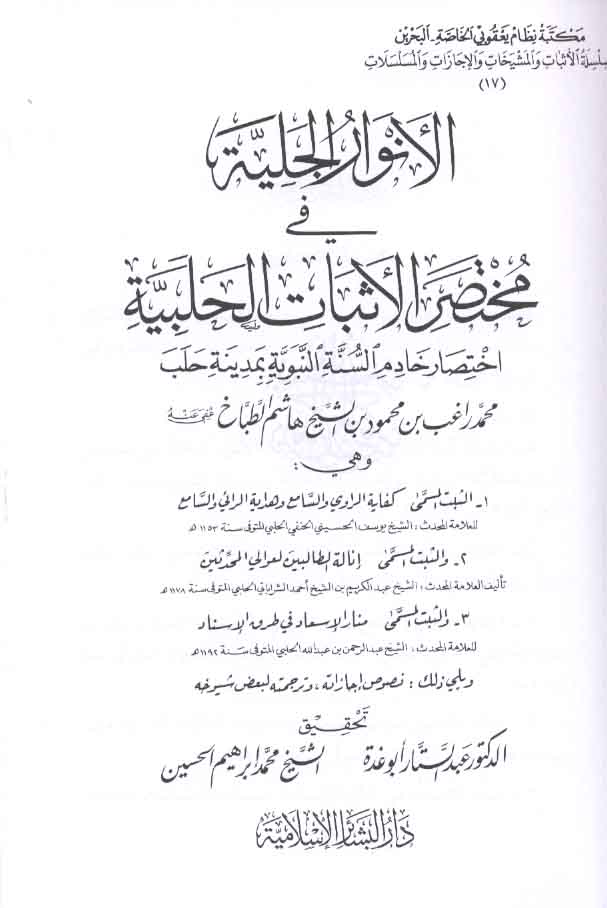 مكتبة نظام يعقوبي الخاصة - البحرين
سلسلة الأثبات والمشيخات والإجازات والمسلسلات
(١٧)
الأنوار الجلية
في
مختصر الأثبات الحلبية
اختصار خادم السنة النبوية بمدينة حلب
محمد راغب بن محمود بن الشيخ هاشم الطباخ عفي عنه
وهي:
١- الثبت المسمى كفاية الراوي والسامع وهداية الرائي والسامع
للعلامة المحدث: الشيخ يوسف الحسيني الحنفي الحلبي المتوفى سنة ١١٥٣ هـ
٢- والثبت المسمى إنالة الطالبين لعوالي المحدثين
تأليف العلامة المحدث: الشيخ عبد الكريم بن الشيخ أحمد الشراباتي الحلبي المتوفى سنة ١١٧٨ هـ
٣- والثبت المسمى منار الإسعاد في طرق الإسناد
للعلامة المحدث: الشيخ عبد الرحمن بن عبد الله الحلبي المتوفى سنة ١١٩٢ هـ
ويلي ذلك: نصوص إجازاته، وترجمته لبعض شيوخه
تحقيق
الدكتور عبد الستار أبو غدة الشيخ محمد إبراهيم الحسين
دار البشائر الإسلامية